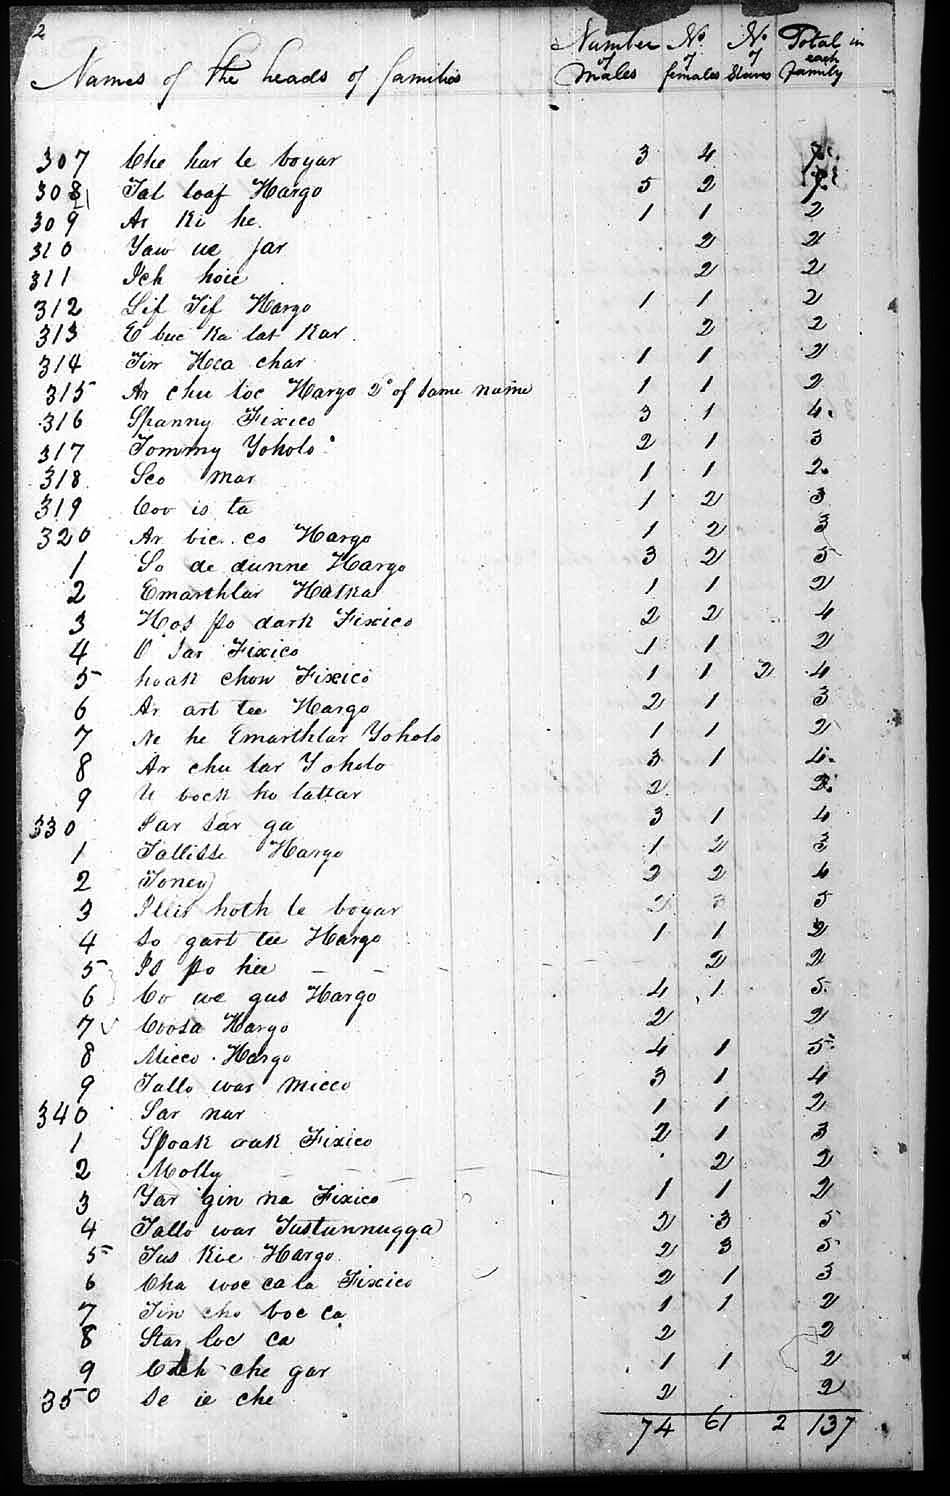 2
Names of the heads of families Number of Males No. of females No of Slaves Total in each family
307 Che har le boyar 3 4 7
308 Tal loaf Hargo 5 2 7
309 Ar Ki he 1 1 2
310 Yaw we jar 2 2
311 Ich hoie 2 2
312 Lif Tif Hargo 1 1 2
313 E buc Ka lat Kar 2 2
314 Tim char 1 1 2
315 Ar chu loc Hargo 2d of same name 1 1 2
316 Spanny Fixico 3 1 4
317 Tommy Yoholo 2 1 3
318 Seo mar 1 1 2
319 Coo is ta 1 2 3
320 Ar bic co Hargo 1 2 3
1 So de dunne Hargo 3 2 5
2 Emarthlar Hatka 1 1 2
3 Hos po dark Fixico 2 2 4
4 O sar Fixico 1 1 2
5 hoak chow Fixico 1 1 2 4
6 Ar art tee Hargo 2 1 3
7 Ne he Emarthlar Yoholo 1 1 2
8 Ar chu lar Yoholo 3 1 4
9 bock ho lattar 2 2
330 Sar sar ga 3 1 4
1 Tallisse Hargo 1 2 3
2 Toney 2 2 4
3 Illis hoth le boyar 2 3 5
4 So gart tee Hargo 1 1 2
5 Is po hee 2 2
6 Co we gus Hargo 4 1 5
7 Coosa Hargo 2 2
8 Micco Hargo 4 1 5
9 Tallo war micco 3 1 4
340 Sar nar 1 1 2
1 Spoak oak Fixico 2 1 3
2 Molly 2 2
3 Yar gin na Fixico 1 1 2
4 Tallo war Tustunnugga 2 3 5
5 Tus Kie Hargo 2 3 5
6 Cha woc ca la Fixico 2 1 3
7 Tin cho boc ca 1 1 2
8 Star loc ca 2 2
9 che gar 1 1 2
350 Se ie che 2 2
74 61 2 137